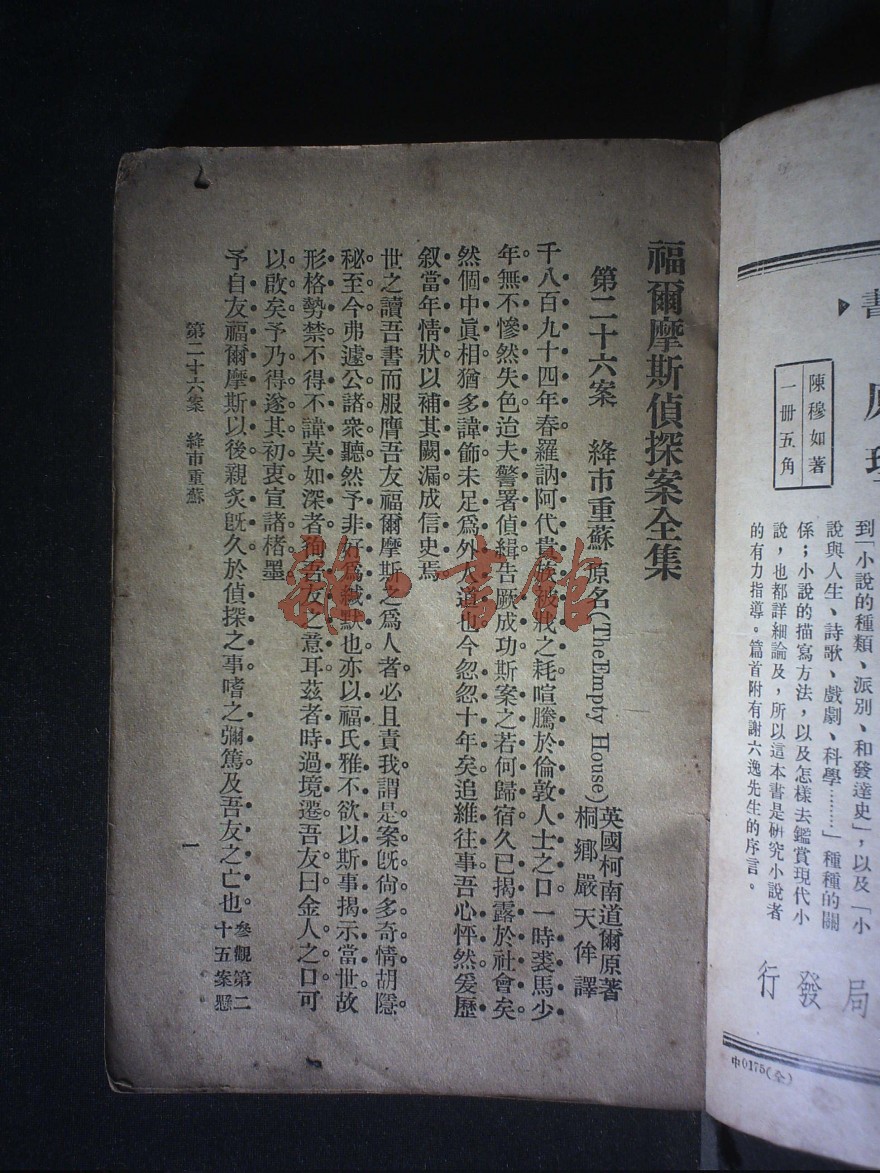 福爾摩斯偵探案全集
第二十六案 絳市重蘇 原名(The Empty House) 英國柯南道爾原著
桐鄉嚴天侔譯
千八百九十四年春羅訥阿代貴族被戕之耗喧騰於倫敦人士之口一時裘馬少
年無不慘然失色迨夫警署偵緝告厥成功斯案之若何歸宿久已揭露於社會矣
然個中眞相猶多諱飾未足爲外人道也今忽忽十年矣追維往事吾心怦然爰歷
叙當年情狀以補其闕漏成信史焉
世之讀吾書而服膺吾友福爾摩斯之爲人者必且責我謂是案旣尙多奇情胡隱
秘至今弗遽公諸衆聽然予非好爲緘默也亦以福氏雅不欲以斯事揭示當世故
形格勢禁不得不諱莫如深者徇吾友之意耳茲者時過境遷吾友曰金人之口可
以啟矣予乃得遂其初衷宣諸楮墨
予自友福爾摩斯以後親炙旣久於偵探之事嗜之彌篤及吾友之亡也參觀第二
十五案懸
第二十六案 絳市重蘇
一
雜·書館
書
原理
陳穆如著
一冊五角
到「小說的種類、派別、和發達史」，以及「小
說與人生、詩歌、戲劇、科學………」種種的關
係；小說的描寫方法，以及怎樣去鑑賞現代小
說，也都詳細論及，所以這本書是硏究小說者
的有力指導。篇首附有謝六逸先生的序言。
局發行
中0175(全)